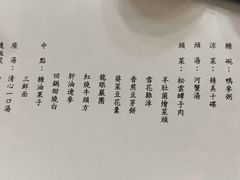 糖碗：鴨參粥
涼菜：精美十碟
頭湯：河蟹湯
頭菜：松雲罈子肉
羊肚菌燴菜頭
雪花雞淖
香煎豆芽餅
葵菜豆花羹
龍眼嚴團
紅燒牛頭方
肝油遼參
回鍋甜燒白
中點：糖油菓子
三鮮面
座湯：清心一口湯